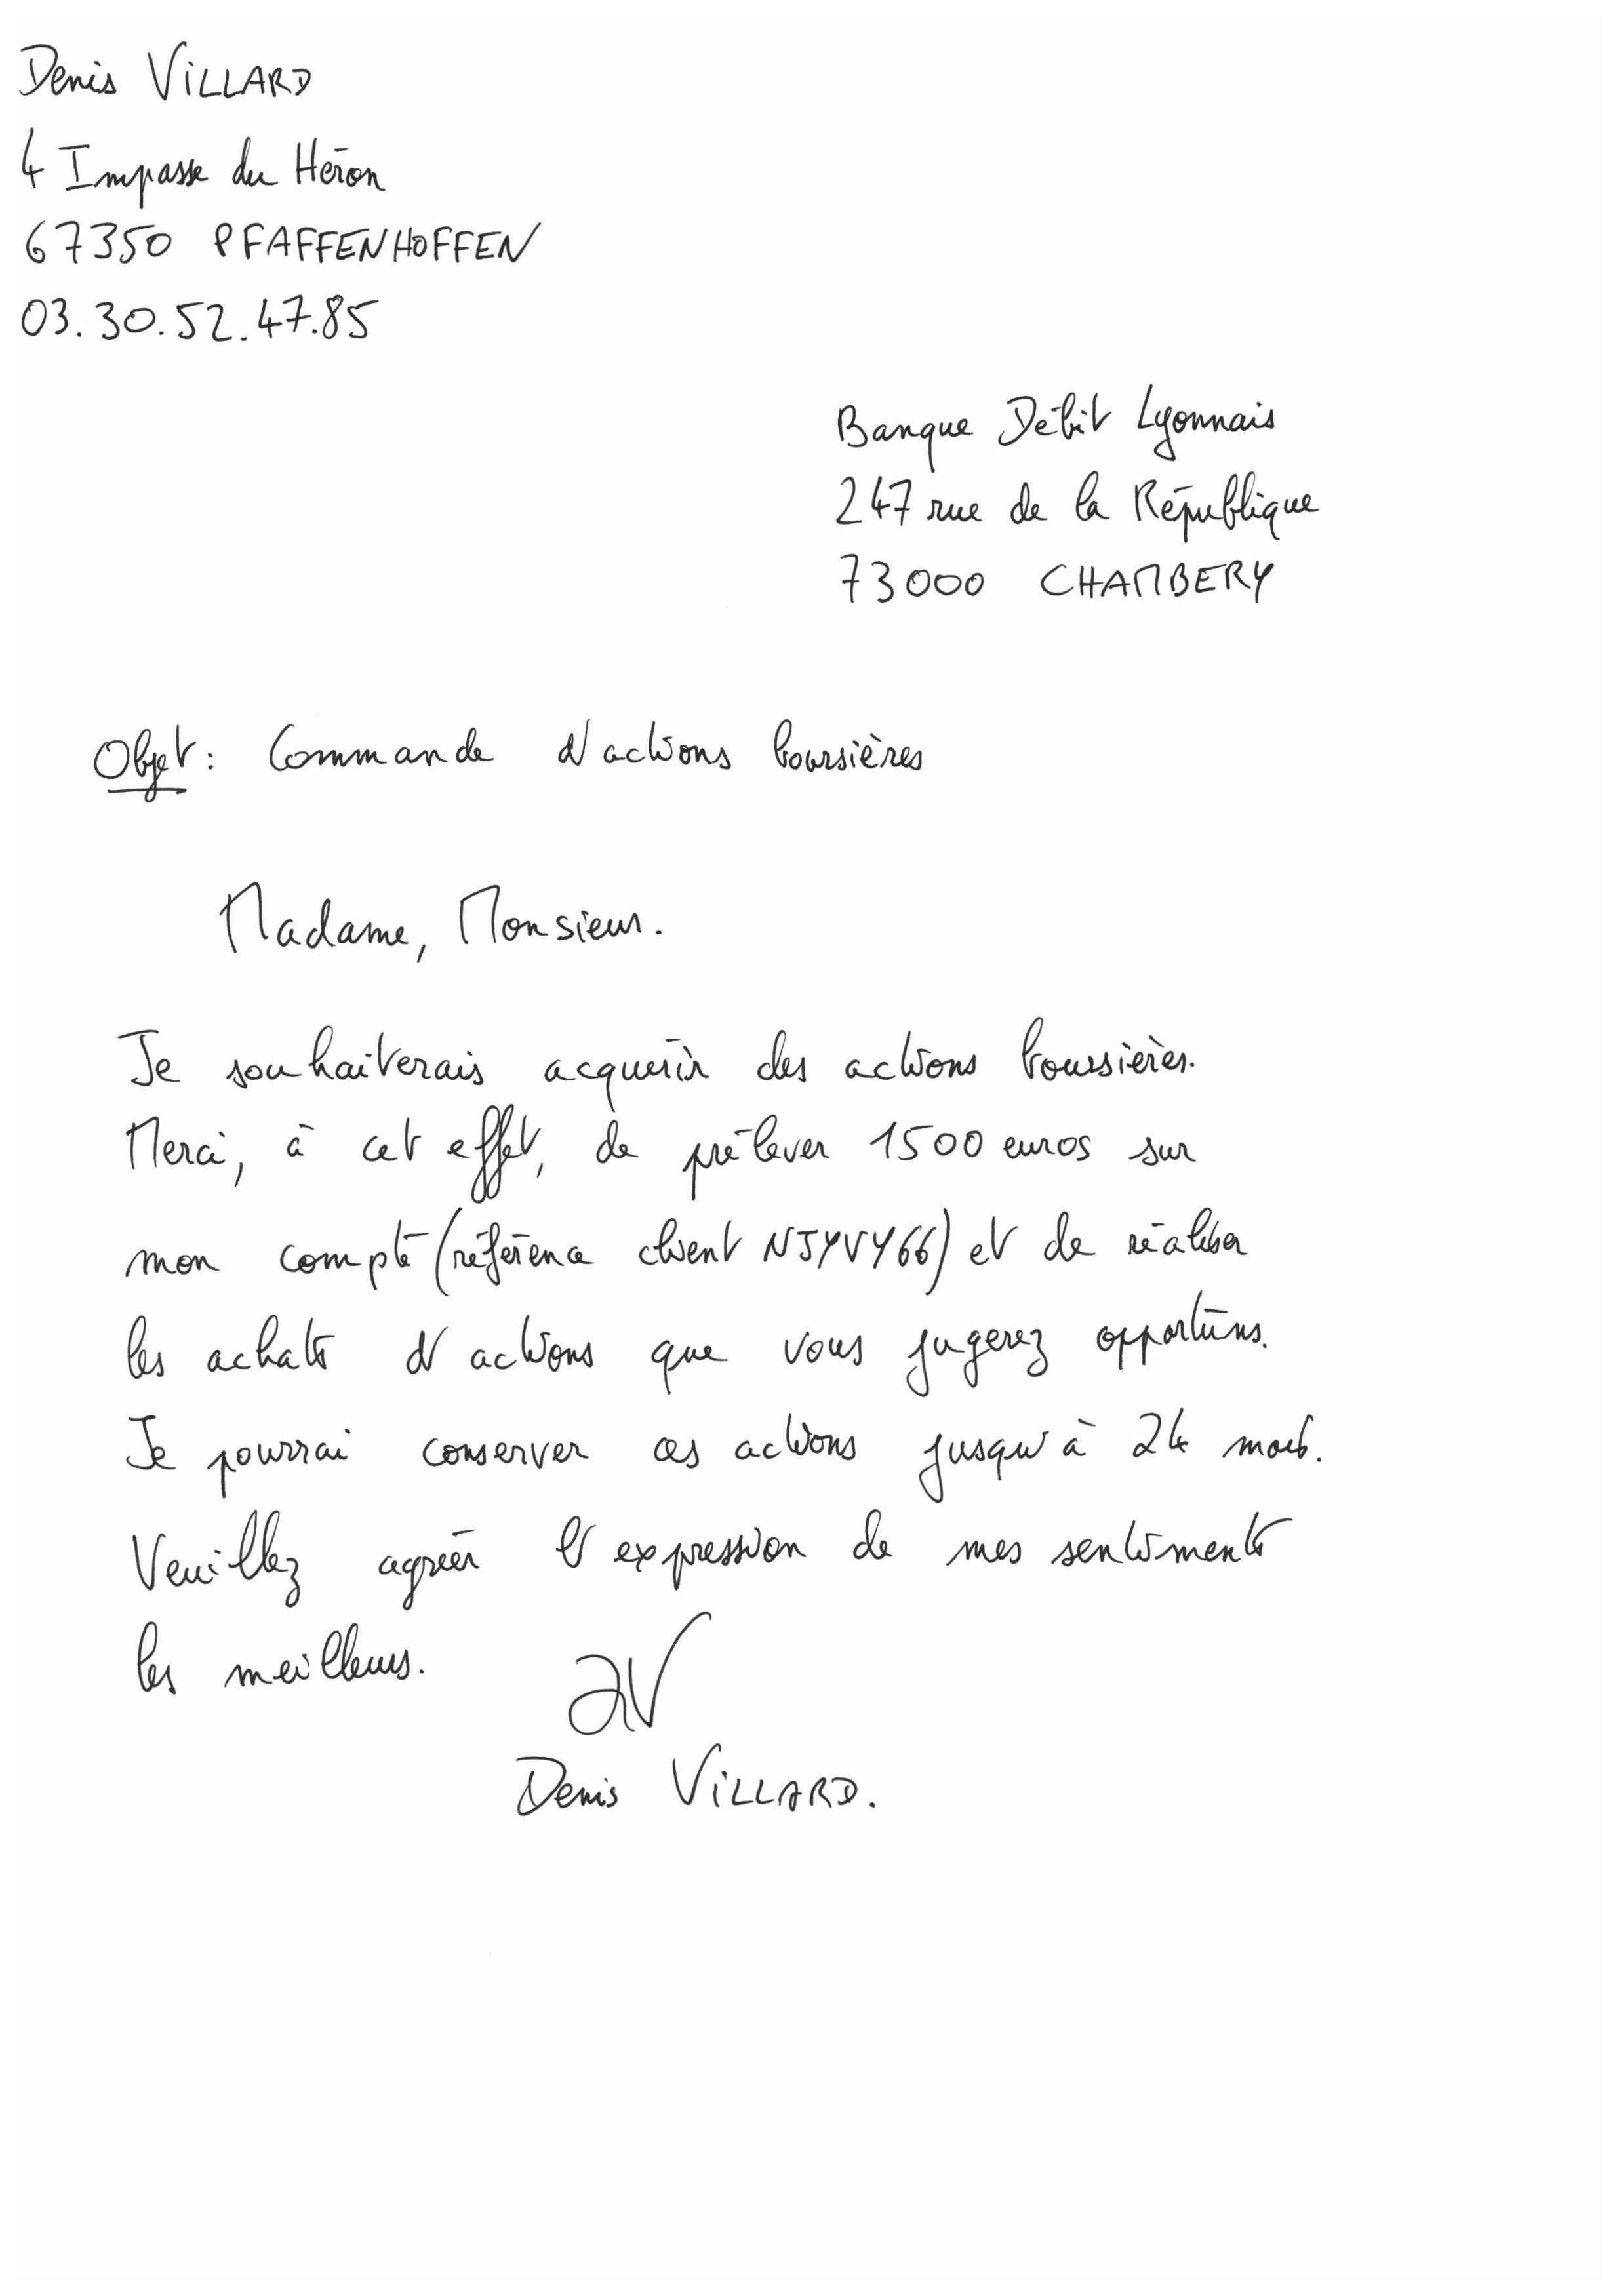 Denis VILLARD
4 Impasse du Héron
67350 PFAFFENHOFFEN
03.30.52.47.85
Banque Débit Lyonnais
247 rue de la République
73000 CHAMBERY
Objet : Commande d'actions boursières
Madame, Monsieur.
Je souhaiterais acquérir des actions boursières.
Merci, à cet effet, de prélever 1500 euros sur
mon compte (référence client NJYVY66) et de réaliser
les achats d'actions que vous jugerez opportuns.
Je pourrai conserver ces actions jusqu'à 24 mois.
Veuillez agréer l'expression de mes sentiments
les meilleurs.
DV
Denis VILLARD.